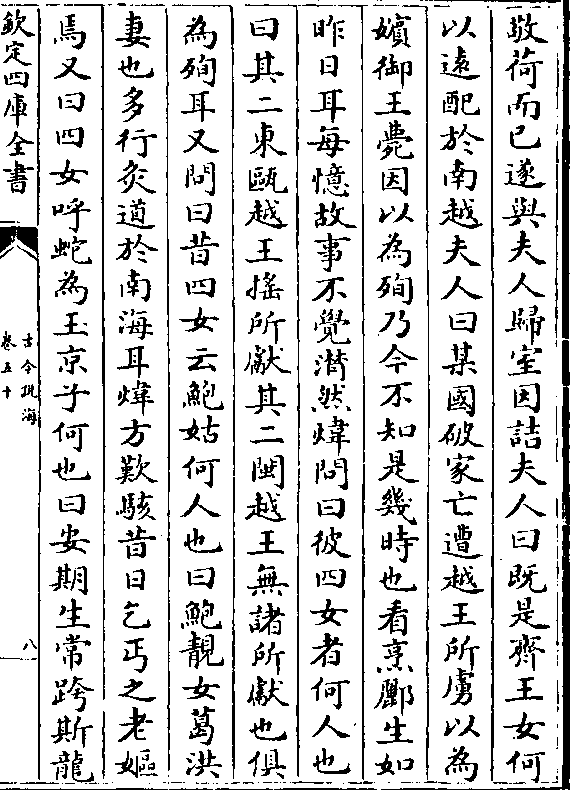 敬荷而已遂與夫人歸室因詰夫人曰既是齊王女何
以遠配於南越夫人曰某國破家亡遭越王所虜以為
嬪御王薨因以為殉乃今不知是幾時也看烹酈生如
昨日耳每憶故事不覺潸然煒問曰彼四女者何人也
曰其二東甌越王搖所獻其二閩越王無諸所獻也俱
為殉耳又問曰昔四女云鮑姑何人也曰鮑靚女葛洪
妻也多行灸道於南海耳煒方歎駭昔日乞丐之老嫗
焉又曰四女呼蛇為玉京子何也曰安期生常跨斯龍
欽定四庫全書
古今說海
卷五十
八